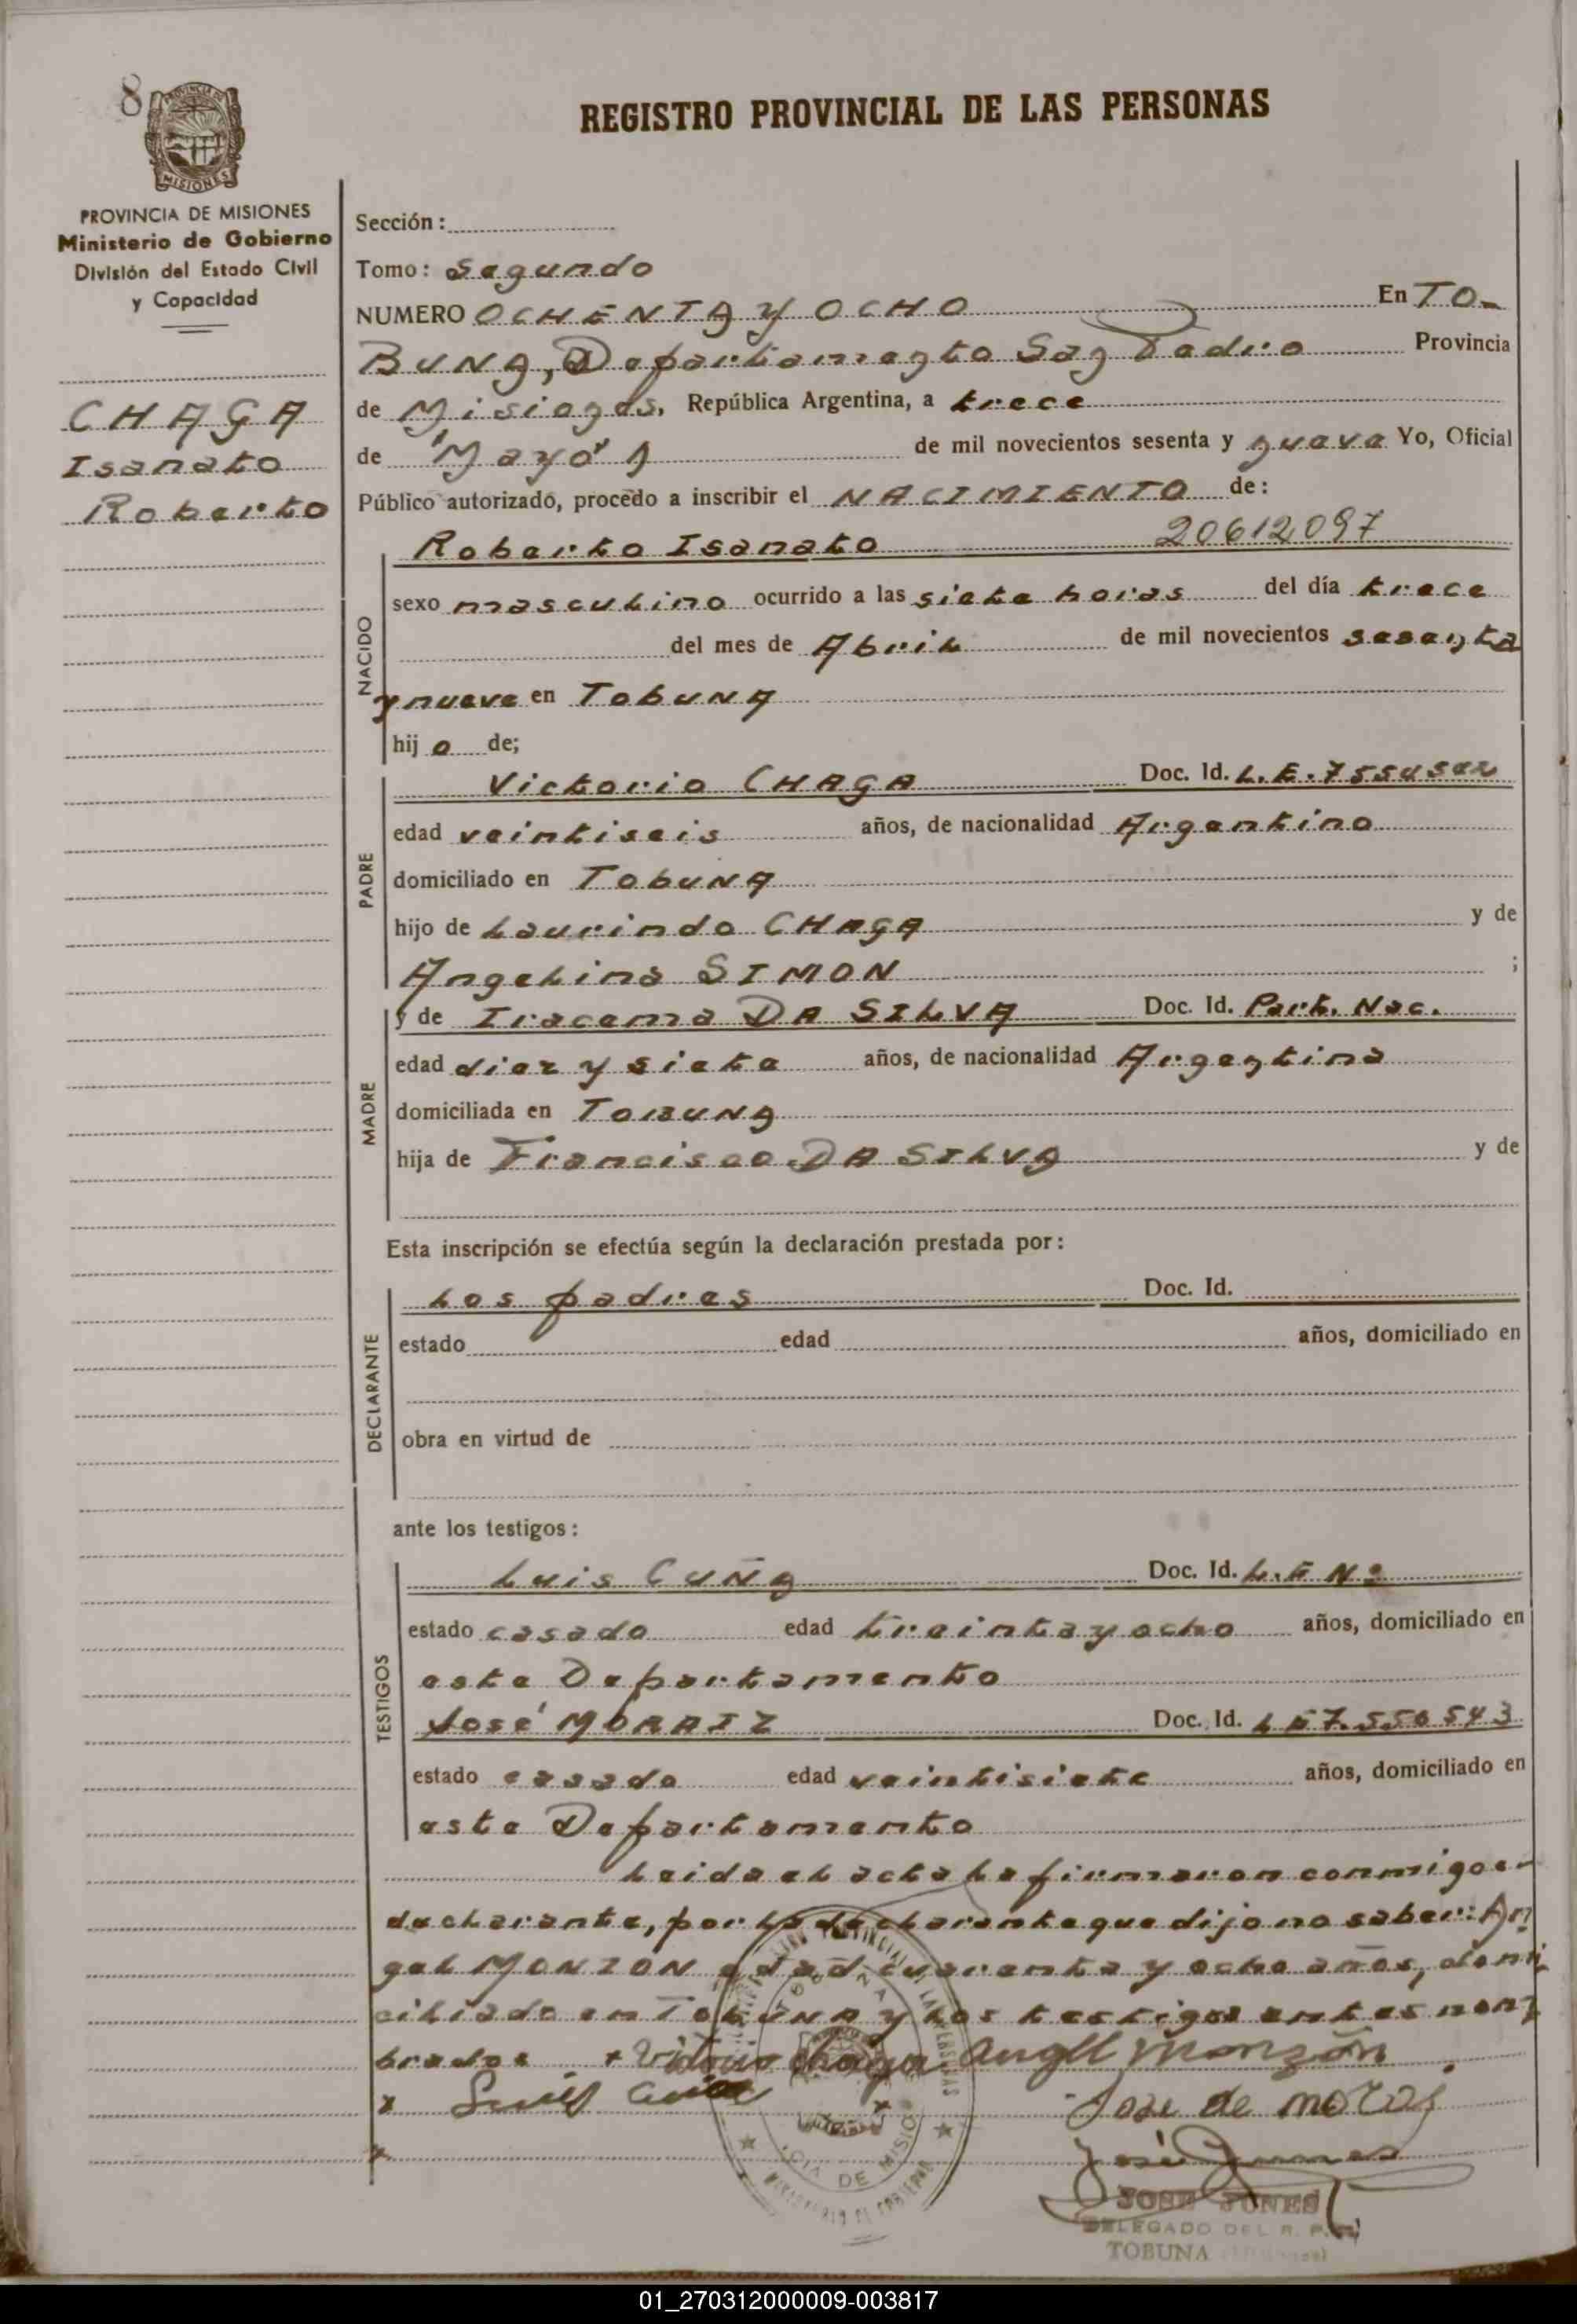 8
REGISTRO PROVINCIAL DE LAS PERSONAS
PROVINCIA DE
MISIONES
PROVINCIA DE MISIONES
Ministerio de Gobierno
División del Estado Civil
y Capacidad
CHAGA
Isanato
Roberto
Sección:
Tomo: Segundo
NUMERO OCHENTA y OCHO En TO-
BUNA, Departamento San Pedro Provincia
de Misiones, República Argentina, a trece
de "Mayo" de mil novecientos sesenta y nueve Yo, Oficial
Público autorizado, procedo a inscribir el NACIMIENTO de:
Roberto Isanato 20612097
NACIDO
sexo masculino ocurrido a las siete horas del día trece
del mes de Abril de mil novecientos sesenta
y nueve en TobUNA
hijo de;
PADRE
Victorio CHAGA Doc. Id. L.E. 7554542
edad veintiseis años, de nacionalidad Argentino
domiciliado en TobUNA
hijo de Laurindo CHAGA y de
Angelina SIMON ;
MADRE
y de Iracema DA SILVA Doc. Id. Part. Nac.
edad diez y siete años, de nacionalidad Argentina
domiciliada en ToBUNA
hija de Francisco DA SILVA y de
Esta inscripción se efectúa según la declaración prestada por:
DECLARANTE
Los padres Doc. Id.
estado edad años, domiciliado en
obra en virtud de
ante los testigos:
TESTIGOS
Luis CUÑA Doc. Id. L.E Nº
estado casado edad treinta y ocho años, domiciliado en
este Departamento
José MORAIZ Doc. Id. L E 7.550543
estado casado edad veintisiete años, domiciliado en
este Departamento
Leida el acta la firmaron conmigo el
declarante, por la declarante que dijo no saber: An
gel MONZON edad cuarenta y ocho años, domi
ciliado en TobUNA y los testigos antes nom
brados + Vitorio Chaga Angel Monzón
x Luis Cuña Jose de moraz
José Junes
JOSE JUNES
DELEGADO DEL R. P.
TOBUNA
01_270312000009-003817